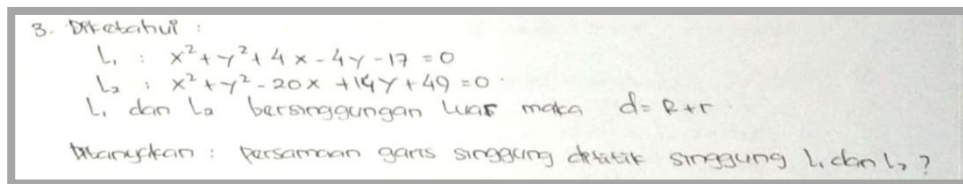 3. Diketahui :
L₁ : x²+y²+4x-4y-17=0
L₂ : x²+y²-20x+14y+49=0.
L₁ dan L₂ bersinggungan luar maka d=R+r.
Ditanyakan : persamaan garis singgung dititik singgung L₁ dan L₂ ?